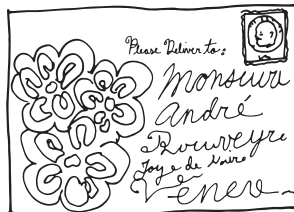 Please Deliver to:
Monsieur
André
Rouveyre
de
Vence